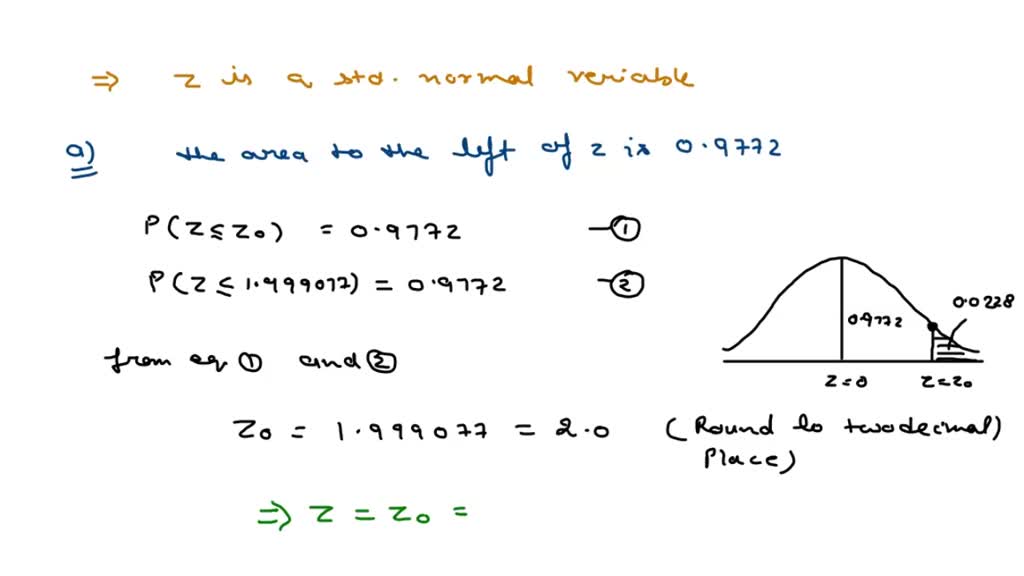 ⇒ z is a std. normal veriable
a) the area to the left of z is 0.9772
P(Z ≤ Z0) = 0.9772 —①
P(Z ≤ 1.999077) = 0.9772 —②
0.0228
0.9772
z=0 z=z0
from eq ① and ②
Z0 = 1.999077 = 2.0 (Round to two decimal)
Place)
⇒ Z = Z0 =